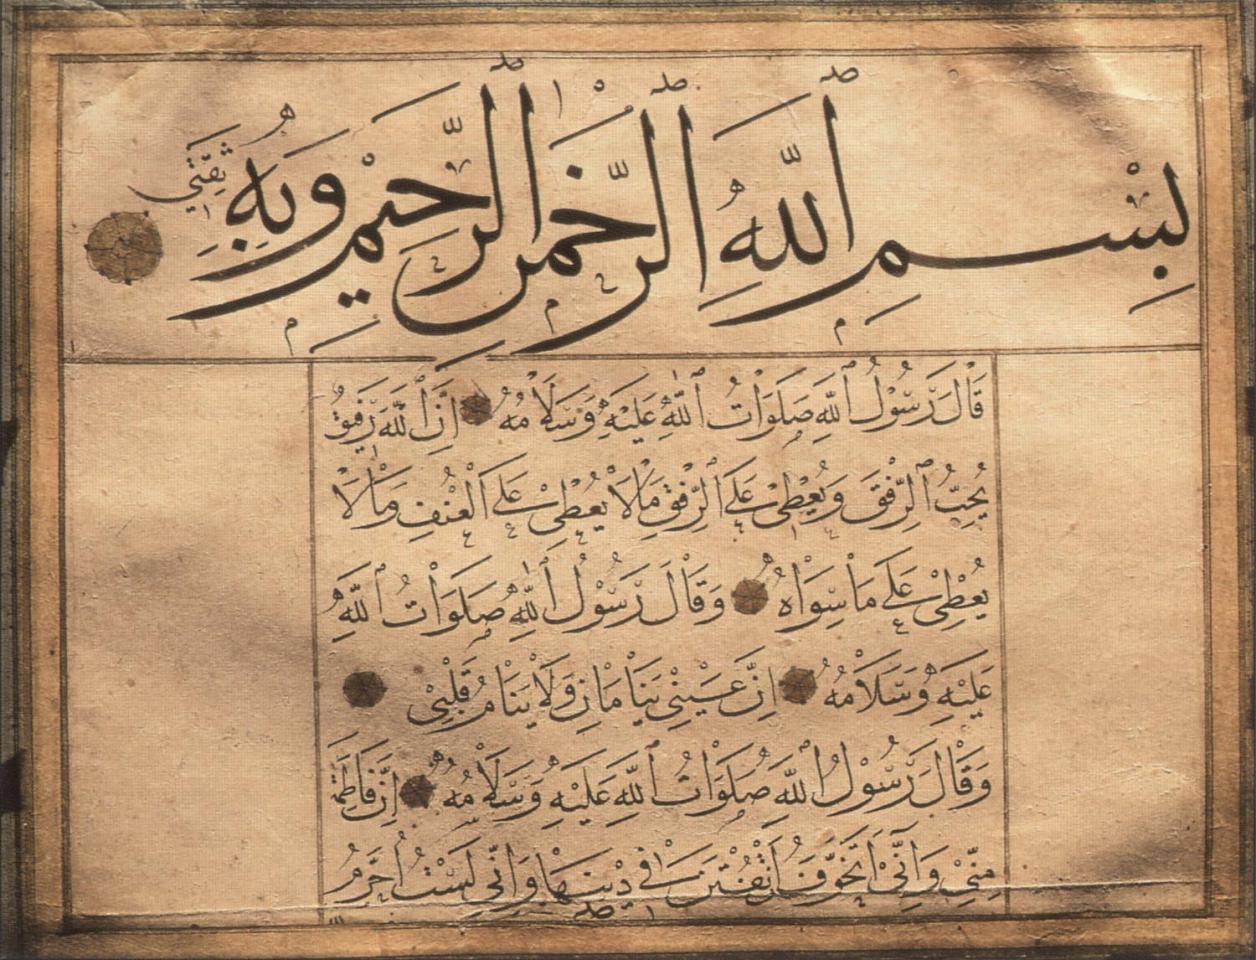 بِسْمِ ٱللَّهِ ٱلرَّحْمٰنِ ٱلرَّحِيمِ وَبِهِ ثِقَتِي
قَالَ رَسُولُ ٱللَّهِ صَلَوَاتُ ٱللَّهِ عَلَيْهِ وَسَلَامُهُ إِنَّ ٱللَّهَ رَفِيقٌ
يُحِبُّ ٱلرِّفْقَ وَيُعْطِي عَلَى ٱلرِّفْقِ مَا لَا يُعْطِي عَلَى ٱلْعُنْفِ وَمَا لَا
يُعْطِي عَلَى مَا سِوَاهُ وَقَالَ رَسُولُ ٱللَّهِ صَلَوَاتُ ٱللَّهِ
عَلَيْهِ وَسَلَامُهُ إِنَّ عَيْنَيَّ يَنَامَانِ وَلَا يَنَامُ قَلْبِي
وَقَالَ رَسُولُ ٱللَّهِ صَلَوَاتُ ٱللَّهِ عَلَيْهِ وَسَلَامُهُ إِنَّ فَاطِمَةَ
مِنِّي وَإِنِّي أَتَخَوَّفُ أَنْ تُفْتَتَنَ فِي دِينِهَا وَإِنِّي لَسْتُ أُحَرِّمُ